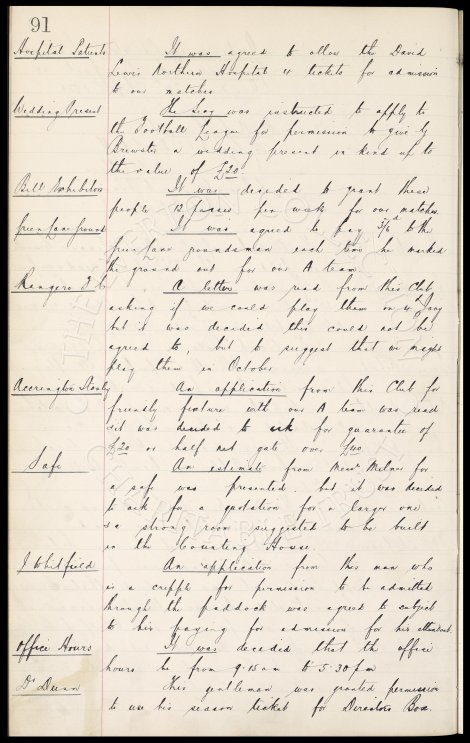 91
Hospital Patients It was agreed to allow the David
Lewis Northern Hospital 4 tickets for admission
to our matches.
Wedding Present The Secy was instructed to apply to
the Football League for permission to give
Brewster a wedding present in kind up to
the value of £20.
Bill Exhibitors It was decided to grant these
people 12 passes per week for our matches.
Green Lane Ground It was agreed to pay 3/6d to the
Green Lane groundsman each time he marked
the ground out for our A team.
Rangers F.C. A letter was read from this Club
asking if we could play them on 4th Jany
but it was decided this could not be
agreed to, but to suggest that we might
play them in October
Accrington Stanley An application from this Club for
friendly fixture with our A team was read
& it was decided to ask for guarantee of
£20 or half net gate over £40.
Safe An estimate from Messrs Milner for
a safe was presented, but it was decided
to ask for a quotation for a larger one
& a strong room suggested to be built
in the Counting House.
J Whitfield An application from this man who
is a cripple for permission to be admitted
through the paddock was agreed to subject
to his paying for admission for his attendant.
Office Hours It was decided that the office
hours be from 9.15 am to 5.30 pm
Dr Dunn This gentleman was granted permission
to use his season ticket for Directors Box.